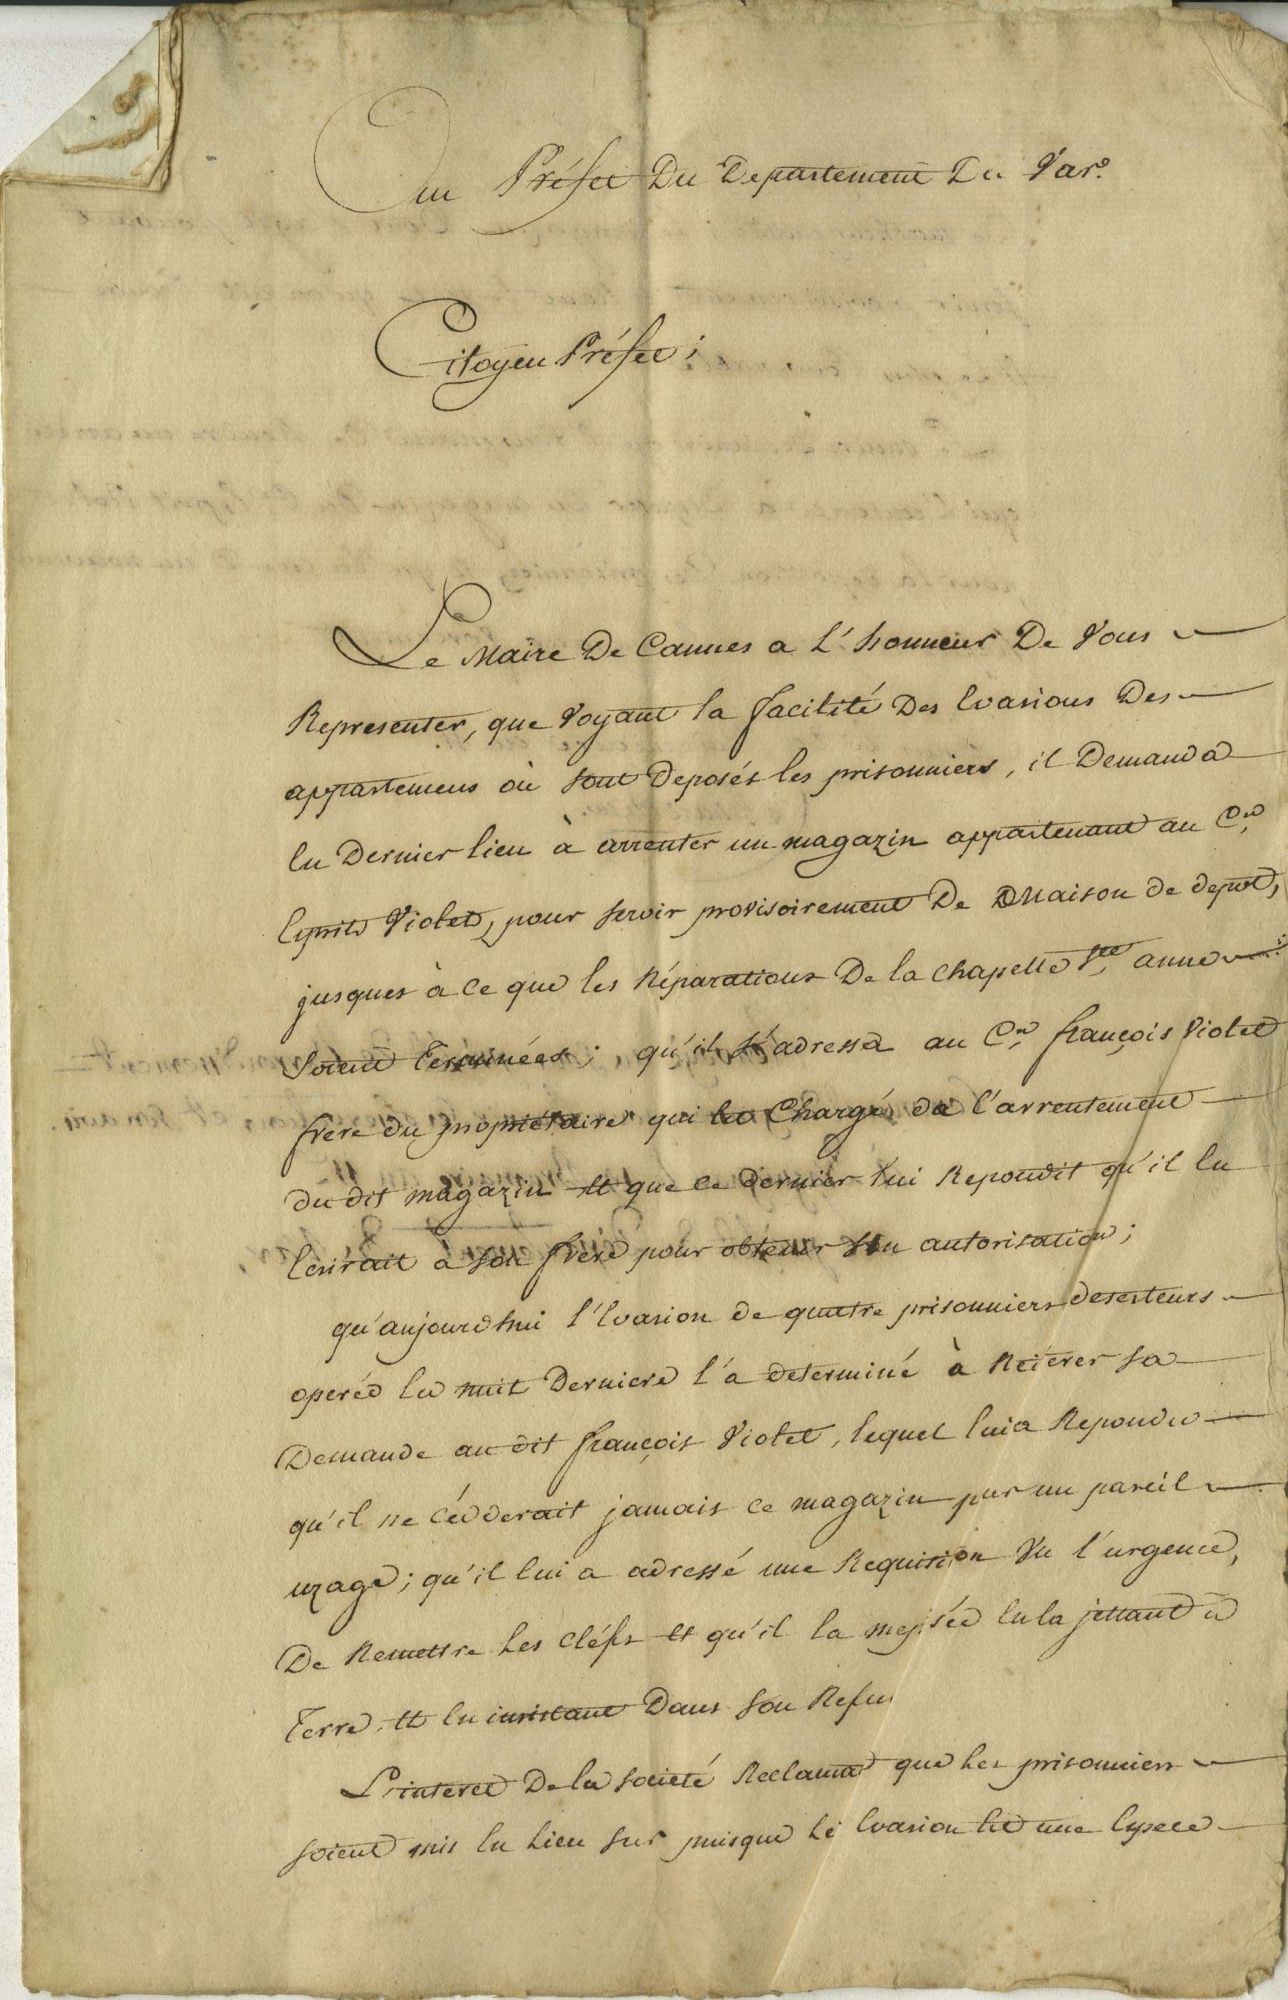 Au Préfet Du Departement Du Var.
Citoyen Préfet;
Le Maire De Cannes a L'honneur De Vous
Representer, que Voyant la facilité Des Evasions Des
appartemens où sont Deposés les prisonniers, il Demanda
En Dernier lieu à arrenter un magazin appartenant au C.en
Esprit Violet, pour servir provisoirement De Maison de depot,
jusques à ce que les Réparations De la chapelle Ste anne
soient Terminées; qu'il s'adressa au C.en françois Violet
frere du propriétaire qui est Chargé de l'arrentement
du dit magazin et que ce dernier lui Repondit qu'il En
Ecrirait a son frere pour obtenir son autorisation;
qu'aujourdhui l'Evasion de quatre prisonniers deserteurs
operée la nuit Derniere l'a determiné à Réiterer sa
Demande au dit françois Violet, lequel lui a Repondu
qu'il ne cédderait jamais ce magazin pour un pareil
uzage; qu'il lui a adressé une Requisition Vu l'urgence,
De Remettre les cléfs et qu'il la meprisée En la jettant à
Terre, et En insistant Dans son Refus
L'interet De la societé Reclame que les prisonniers
soient mis En Lieu sur puisque l'Evasion est une Espece